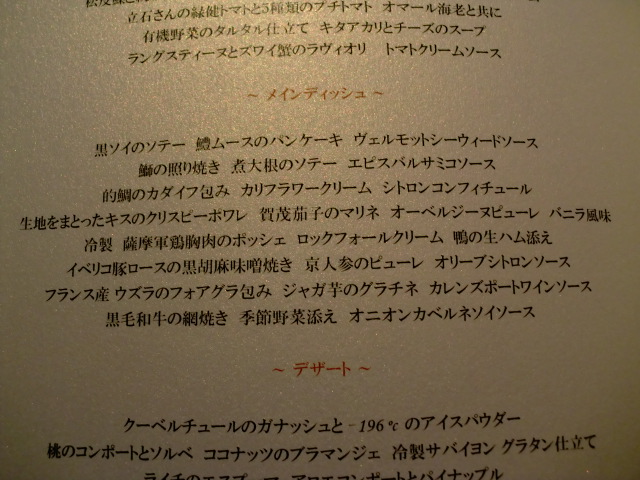 立石さんの緑健トマトと5種類のプチトマト オマール海老と共に
有機野菜のタルタル仕立て キタアカリとチーズのスープ
ラングスティーヌとズワイ蟹のラヴィオリ トマトクリームソース
~ メインディッシュ ~
黒ソイのソテー 鱧ムースのパンケーキ ヴェルモットシーウィードソース
鰤の照り焼き 煮大根のソテー エピスバルサミコソース
的鯛のカダイフ包み カリフラワークリーム シトロンコンフィチュール
生地をまとったキスのクリスピーポワレ 賀茂茄子のマリネ オーベルジーヌピューレ バニラ風味
冷製 薩摩軍鶏胸肉のポッシェ ロックフォールクリーム 鴨の生ハム添え
イベリコ豚ロースの黒胡麻味噌焼き 京人参のピューレ オリーブシトロンソース
フランス産 ウズラのフォアグラ包み ジャガ芋のグラチネ カレンズポートワインソース
黒毛和牛の網焼き 季節野菜添え オニオンカベルネソイソース
~ デザート ~
クーベルチュールのガナッシュと -196℃ のアイスパウダー
桃のコンポートとソルベ ココナッツのブラマンジェ 冷製サバイヨン グラタン仕立て
ライチのエスプーマ アロエコンポートとパイナップル